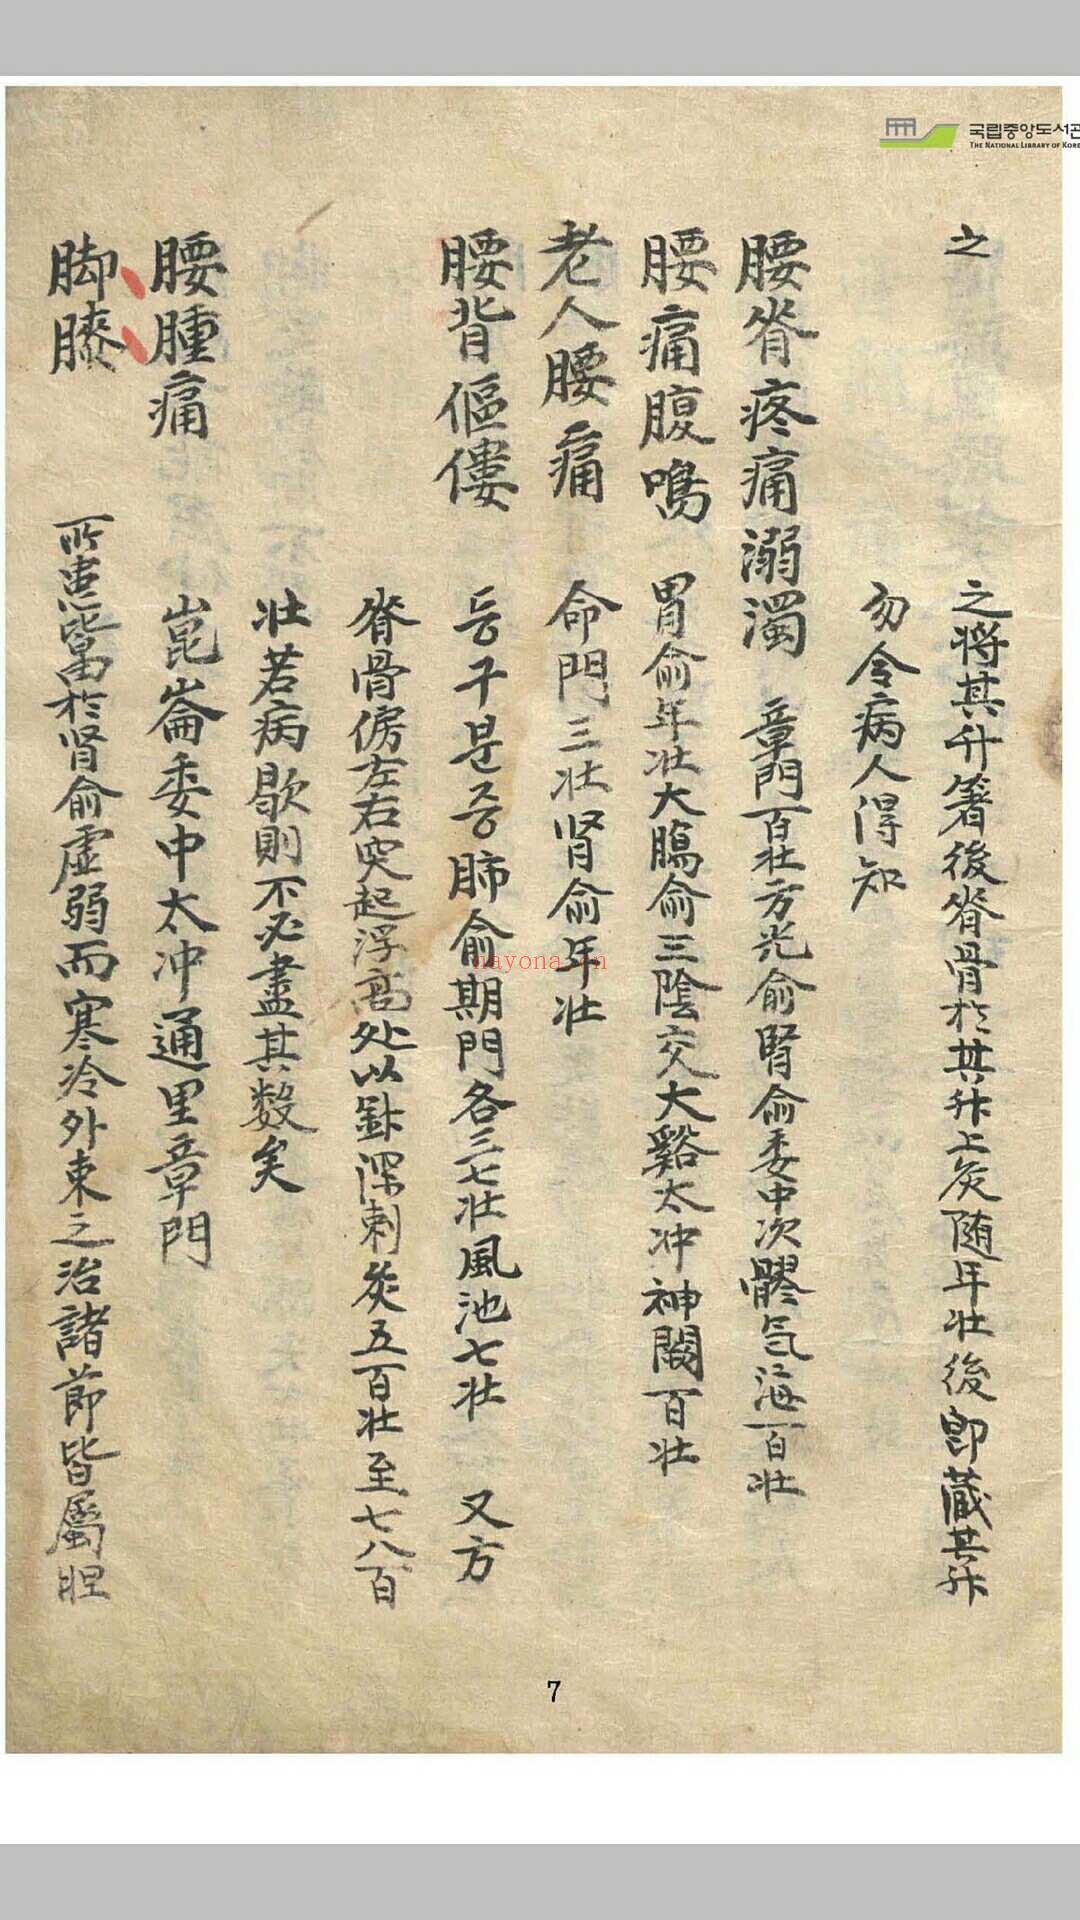 国립중앙도서관
THE NATIONAL LIBRARY OF KOREA
之 之將其升箸後脊骨於其升上灸随年壮後即藏其升
勿令病人得知
腰脊疼痛溺濁 章門百壮方光俞腎俞委中次髎気海百壮
腰痛腹鳴 胃俞年壮大膓俞三陰交大谿太冲神闕百壮
老人腰痛 命門三壮肾俞年壮
腰背傴僂 등구븐증肺俞期門各三七壮風池七壮 又方
脊骨傍左右突起浮高处以針深刺灸五百壮至七八百
壮若病歇則不必盡其数矣
腰腫痛 崑崙委中太冲通里章門
脚膝 所患皆因於肾俞虛弱而寒冷外束之治諸節皆屬胆
nayona.cn
7